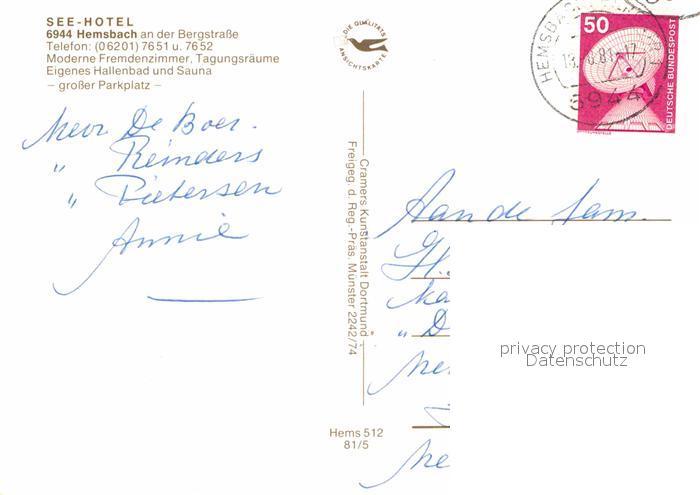 SEE-HOTEL
6944 Hemsbach an der Bergstraße
Telefon: (06201) 7651 u. 7652
Moderne Fremdenzimmer, Tagungsräume
Eigenes Hallenbad und Sauna
– großer Parkplatz –
Mevr De Boer.
" Reinders
" Pietersen
Annie
DIE QUALITÄTS
ANSICHTSKARTE
Cramers Kunstanstalt Dortmund
Freigeg. d. Reg.-Präs. Münster 2242/74
Hems 512
81/5
HEMSBACH
6944
50
DEUTSCHE BUNDESPOST
Aan de Fam.
privacy protection
Datenschutz